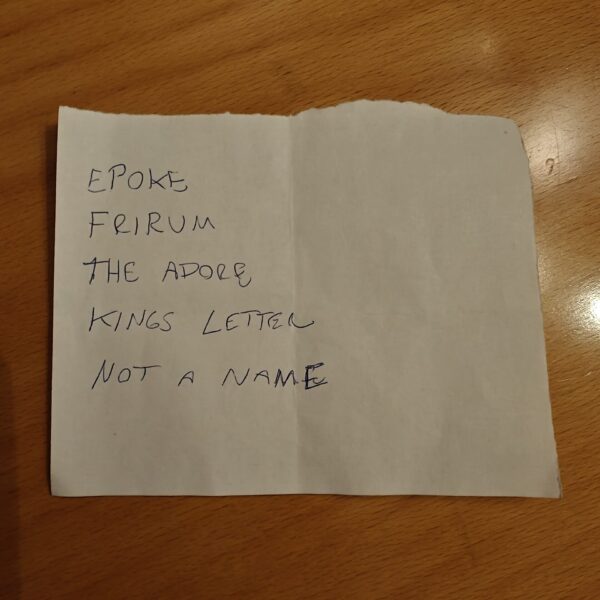 EPOKE
FRIRUM
THE ADORE
KINGS LETTER
NOT A NAME